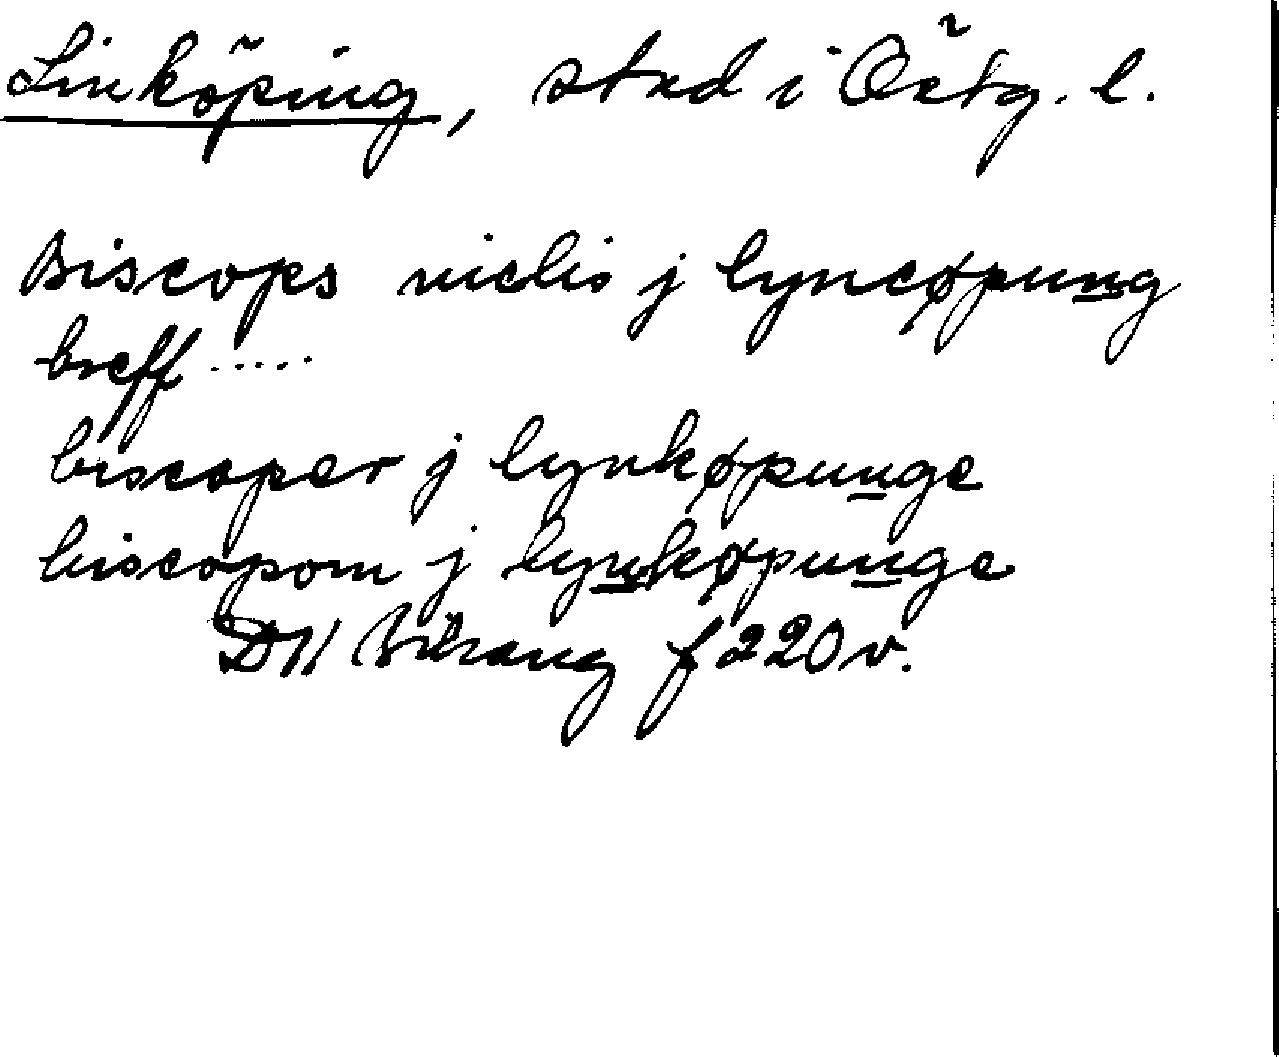 Linköping, stad i Östg. l.
Biscops niclis j lyncøpung
breff .....
biscoper j lynkøpunge
biscopom j lynkøpunge
DN Bihang f 220 v.